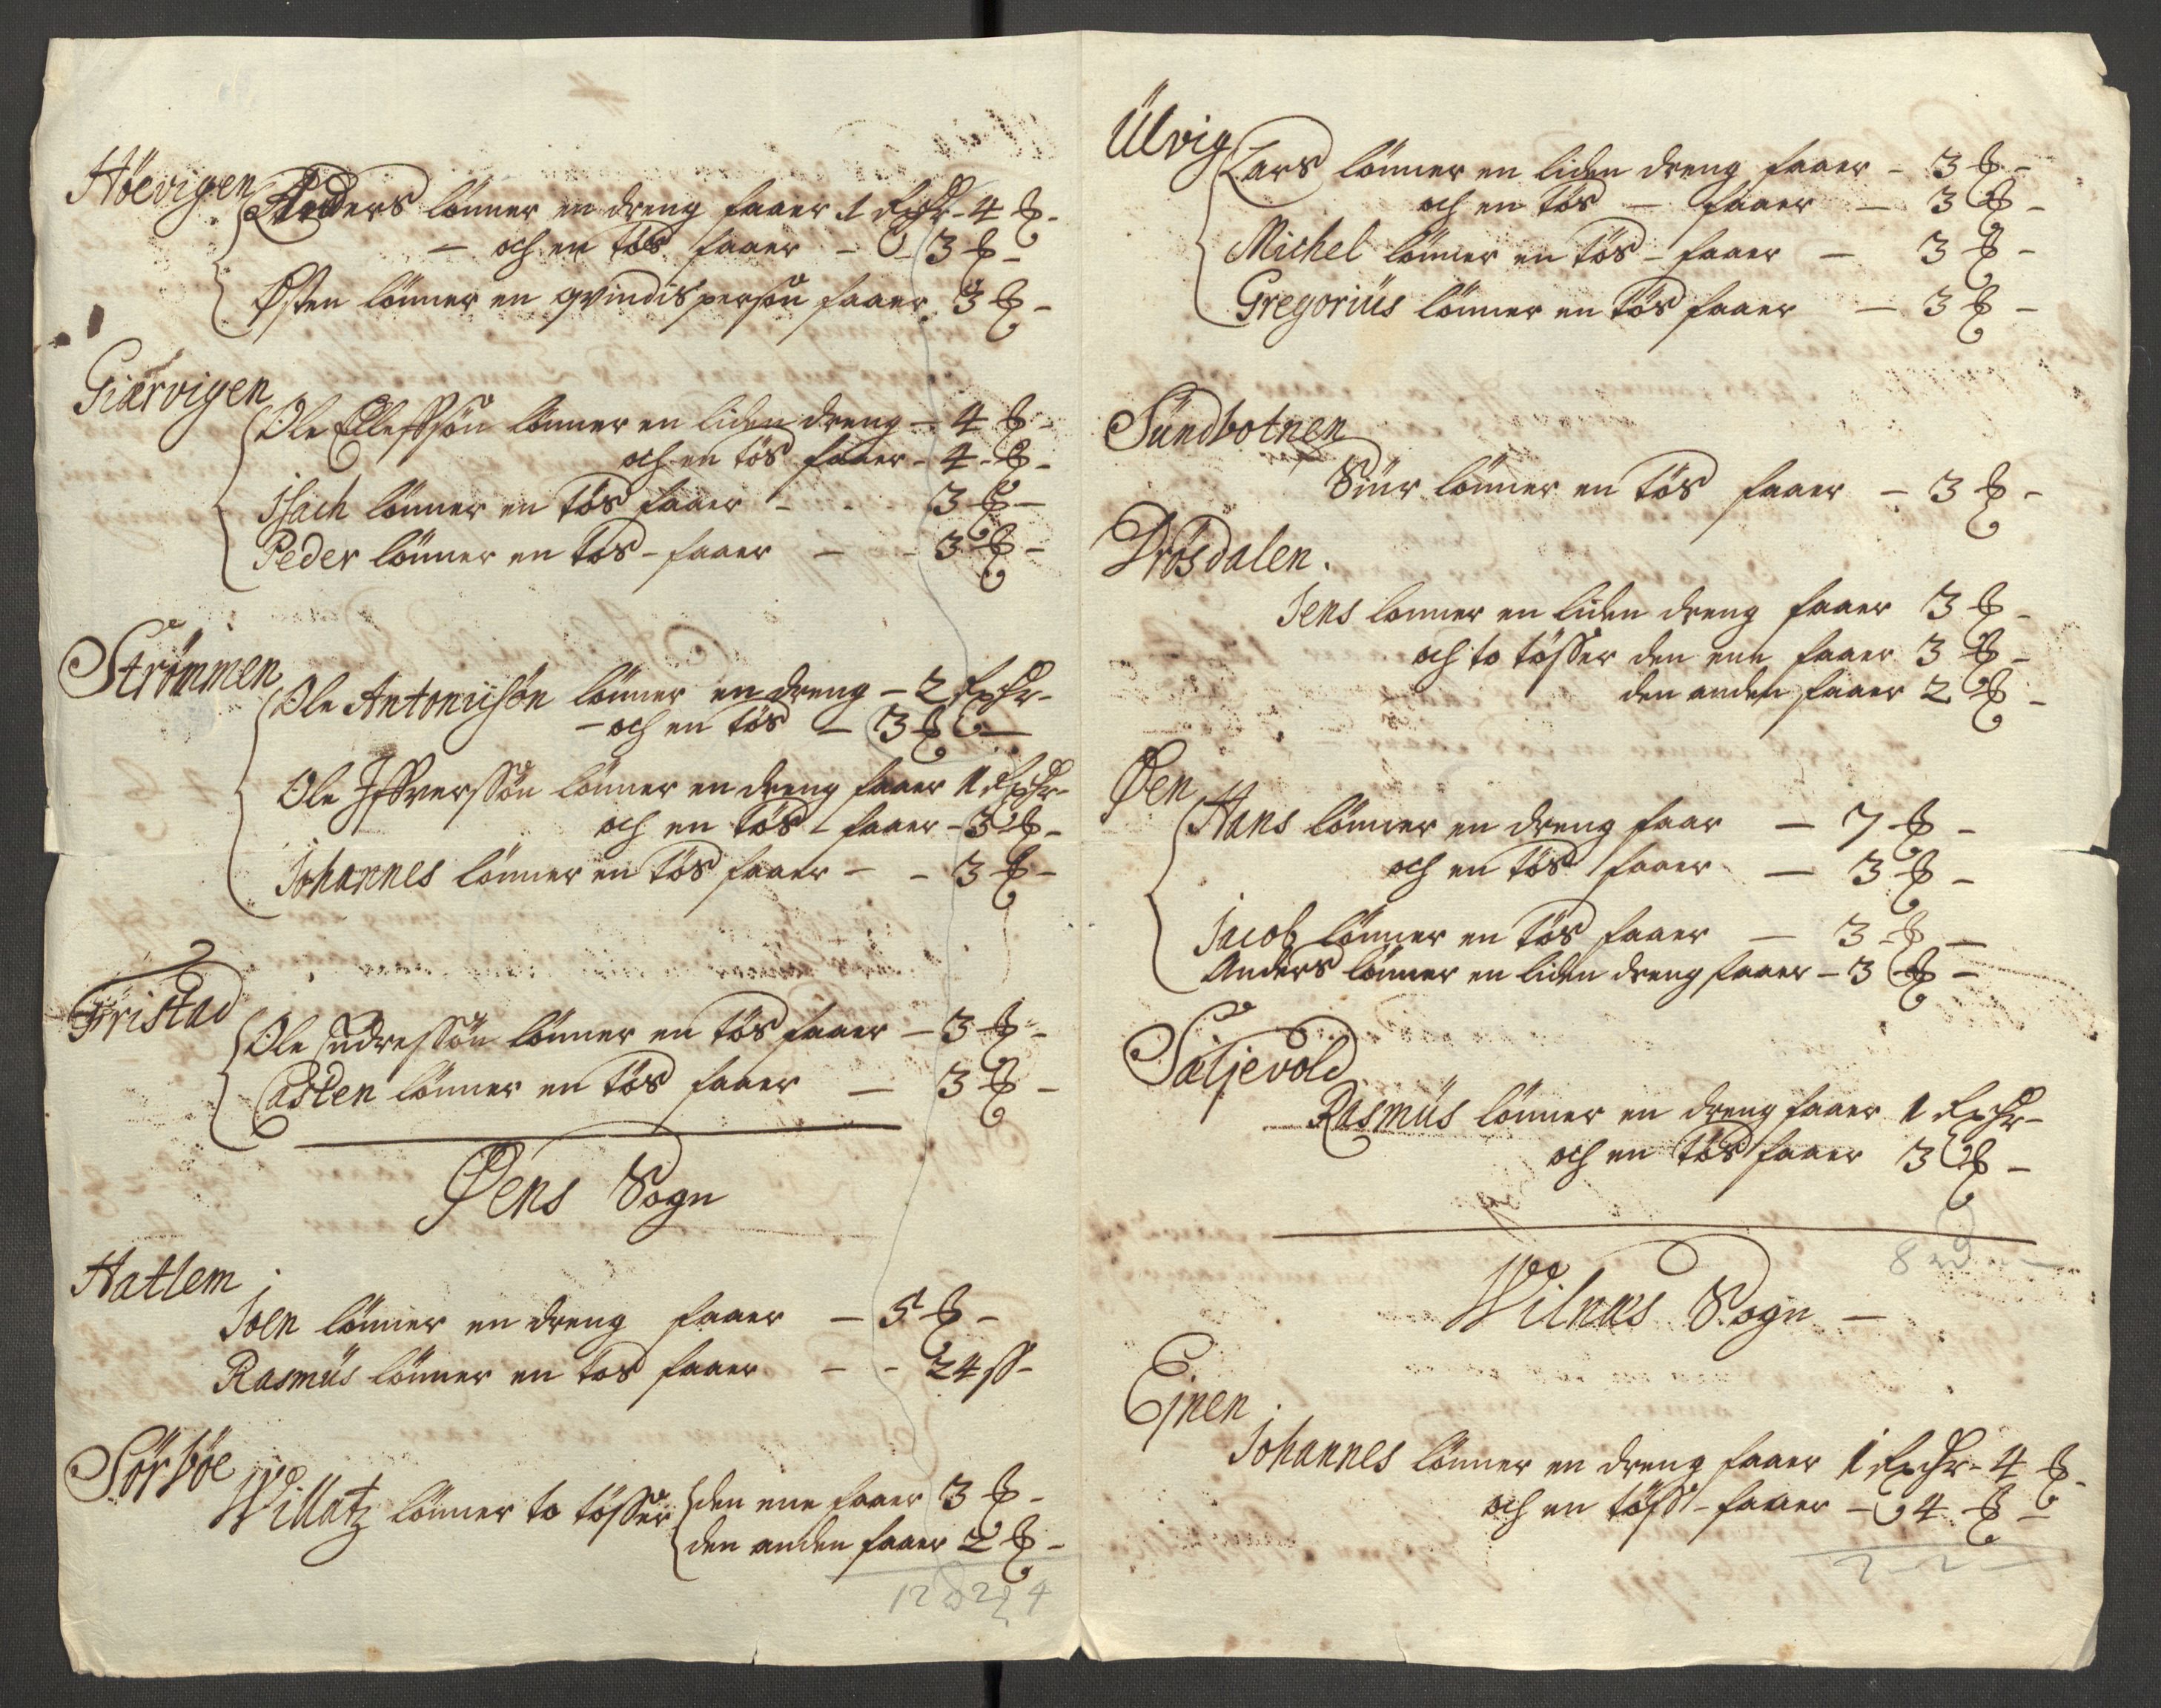 Höevigen
Anders lönner en dreng faaer 1 Rixdr - 4 ℔ -
- och en tös faaer - 3 ℔ -
Östen lönner en qvindisperson faaer 3 ℔ -
Giærvigen
Ole Ellefssön lönner en liden dreng - 4 ℔ -
och en tös faaer - 4 ℔ -
Isach lönner en tös faaer - - - 3 ℔ -
Peder lönner en tös - faaer - - 3 ℔ -
Strömmen
Ole Antoniisön lönner en dreng - 2 Rixdr -
- och en tös - 3 ℔ -
Ole Iffverssön lönner en dreng faaer 1 Rixdr -
och en tös - faaer - 3 ℔ -
Johannes lönner en tös faaer - - 3 ℔ -
Tristad
Ole Endressön lönner en tös faaer - 3 ℔ -
Casten lönner en tös faaer - 3 ℔ -
Øens Sogn
Hatlem
Joen lönner en dreng faaer - 5 ℔ -
Rasmüs lönner en tös faaer - - 24 ss -
Sörböe
Willatz lönner to tösser den ene faaer 3 ℔ -
den anden faaer 2 ℔ -
Ülvig
Lars lönner en liden dreng faaer - 3 ℔ -
och en tös - faaer - 3 ℔ -
Michel lönner en tös - faaer - 3 ℔ -
Gregoriüs lönner en tös faaer - 3 ℔ -
Sündbotnen
Siur lönner en tös faaer - 3 ℔ -
Drösdalen.
Jens lönner en liden dreng faaer 3 ℔ -
och to tösser den ene faaer 3 ℔ -
den anden faaer 2 ℔ -
Øen
Hans lönner en dreng faar - 7 ℔ -
och en tös faaer - 3 ℔ -
Jacob lönner en tös faaer - 3 ℔ -
Anders lönner en liden dreng faaer - 3 ℔ -
Sæljevold
Rasmüs lönner en dreng faaer 1 Rixdr -
och en tös faaer 3 ℔ -
Wilnæs Sogn -
Ejnen
Johannes lönner en dreng faaer 1 Rixdr - 4 ℔ -
och en töss - faaer - 4 ℔ -